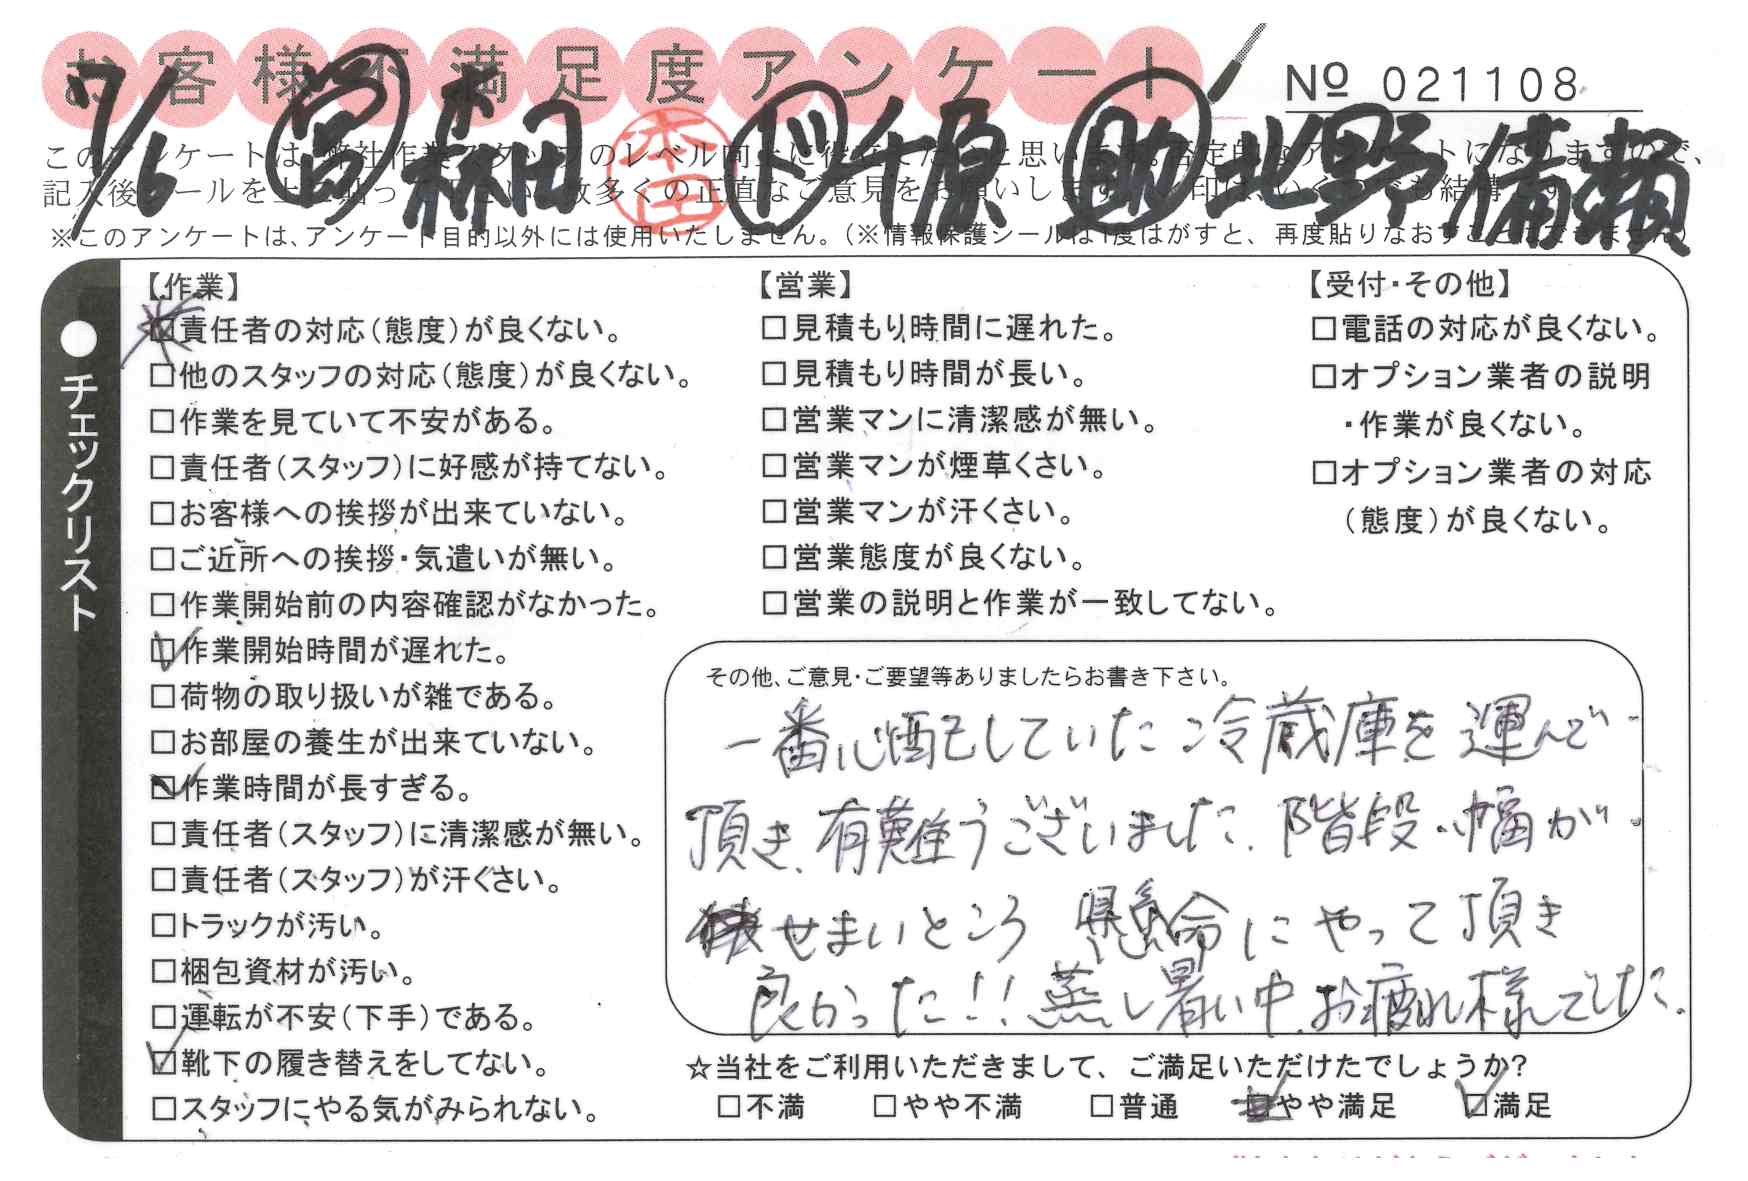 お客様不満足度アンケート
№ 021108
7/6 営 森田 本田 ド 千原 助 北野 備瀬
このアンケートは、弊社作業スタッフのレベル向上に役立てたいと思います。否定的なアンケートになりますので、
記入後シールを上に貼って下さい。数多くの正直なご意見をお願いします。レ印は、いくつでも結構です。
※このアンケートは、アンケート目的以外には使用いたしません。（※情報保護シールは1度はがすと、再度貼りなおすことはできません）
●チェックリスト
【作業】
□責任者の対応（態度）が良くない。
□他のスタッフの対応（態度）が良くない。
□作業を見ていて不安がある。
□責任者（スタッフ）に好感が持てない。
□お客様への挨拶が出来ていない。
□ご近所への挨拶・気遣いが無い。
□作業開始前の内容確認がなかった。
☑作業開始時間が遅れた。
□荷物の取り扱いが雑である。
□お部屋の養生が出来ていない。
☑作業時間が長すぎる。
□責任者（スタッフ）に清潔感が無い。
□責任者（スタッフ）が汗くさい。
□トラックが汚い。
□梱包資材が汚い。
□運転が不安（下手）である。
☑靴下の履き替えをしてない。
□スタッフにやる気がみられない。
【営業】
□見積もり時間に遅れた。
□見積もり時間が長い。
□営業マンに清潔感が無い。
□営業マンが煙草くさい。
□営業マンが汗くさい。
□営業態度が良くない。
□営業の説明と作業が一致してない。
【受付・その他】
□電話の対応が良くない。
□オプション業者の説明
・作業が良くない。
□オプション業者の対応
（態度）が良くない。
その他、ご意見・ご要望等ありましたらお書き下さい。
一番心配していた冷蔵庫を運んで
頂き、有難うございました。階段の幅が
せまいところ 懸命にやって頂き
良かった!! 蒸し暑い中、お疲れ様でした。
☆当社をご利用いただきまして、ご満足いただけたでしょうか?
□不満 □やや不満 □普通 □やや満足 ☑満足